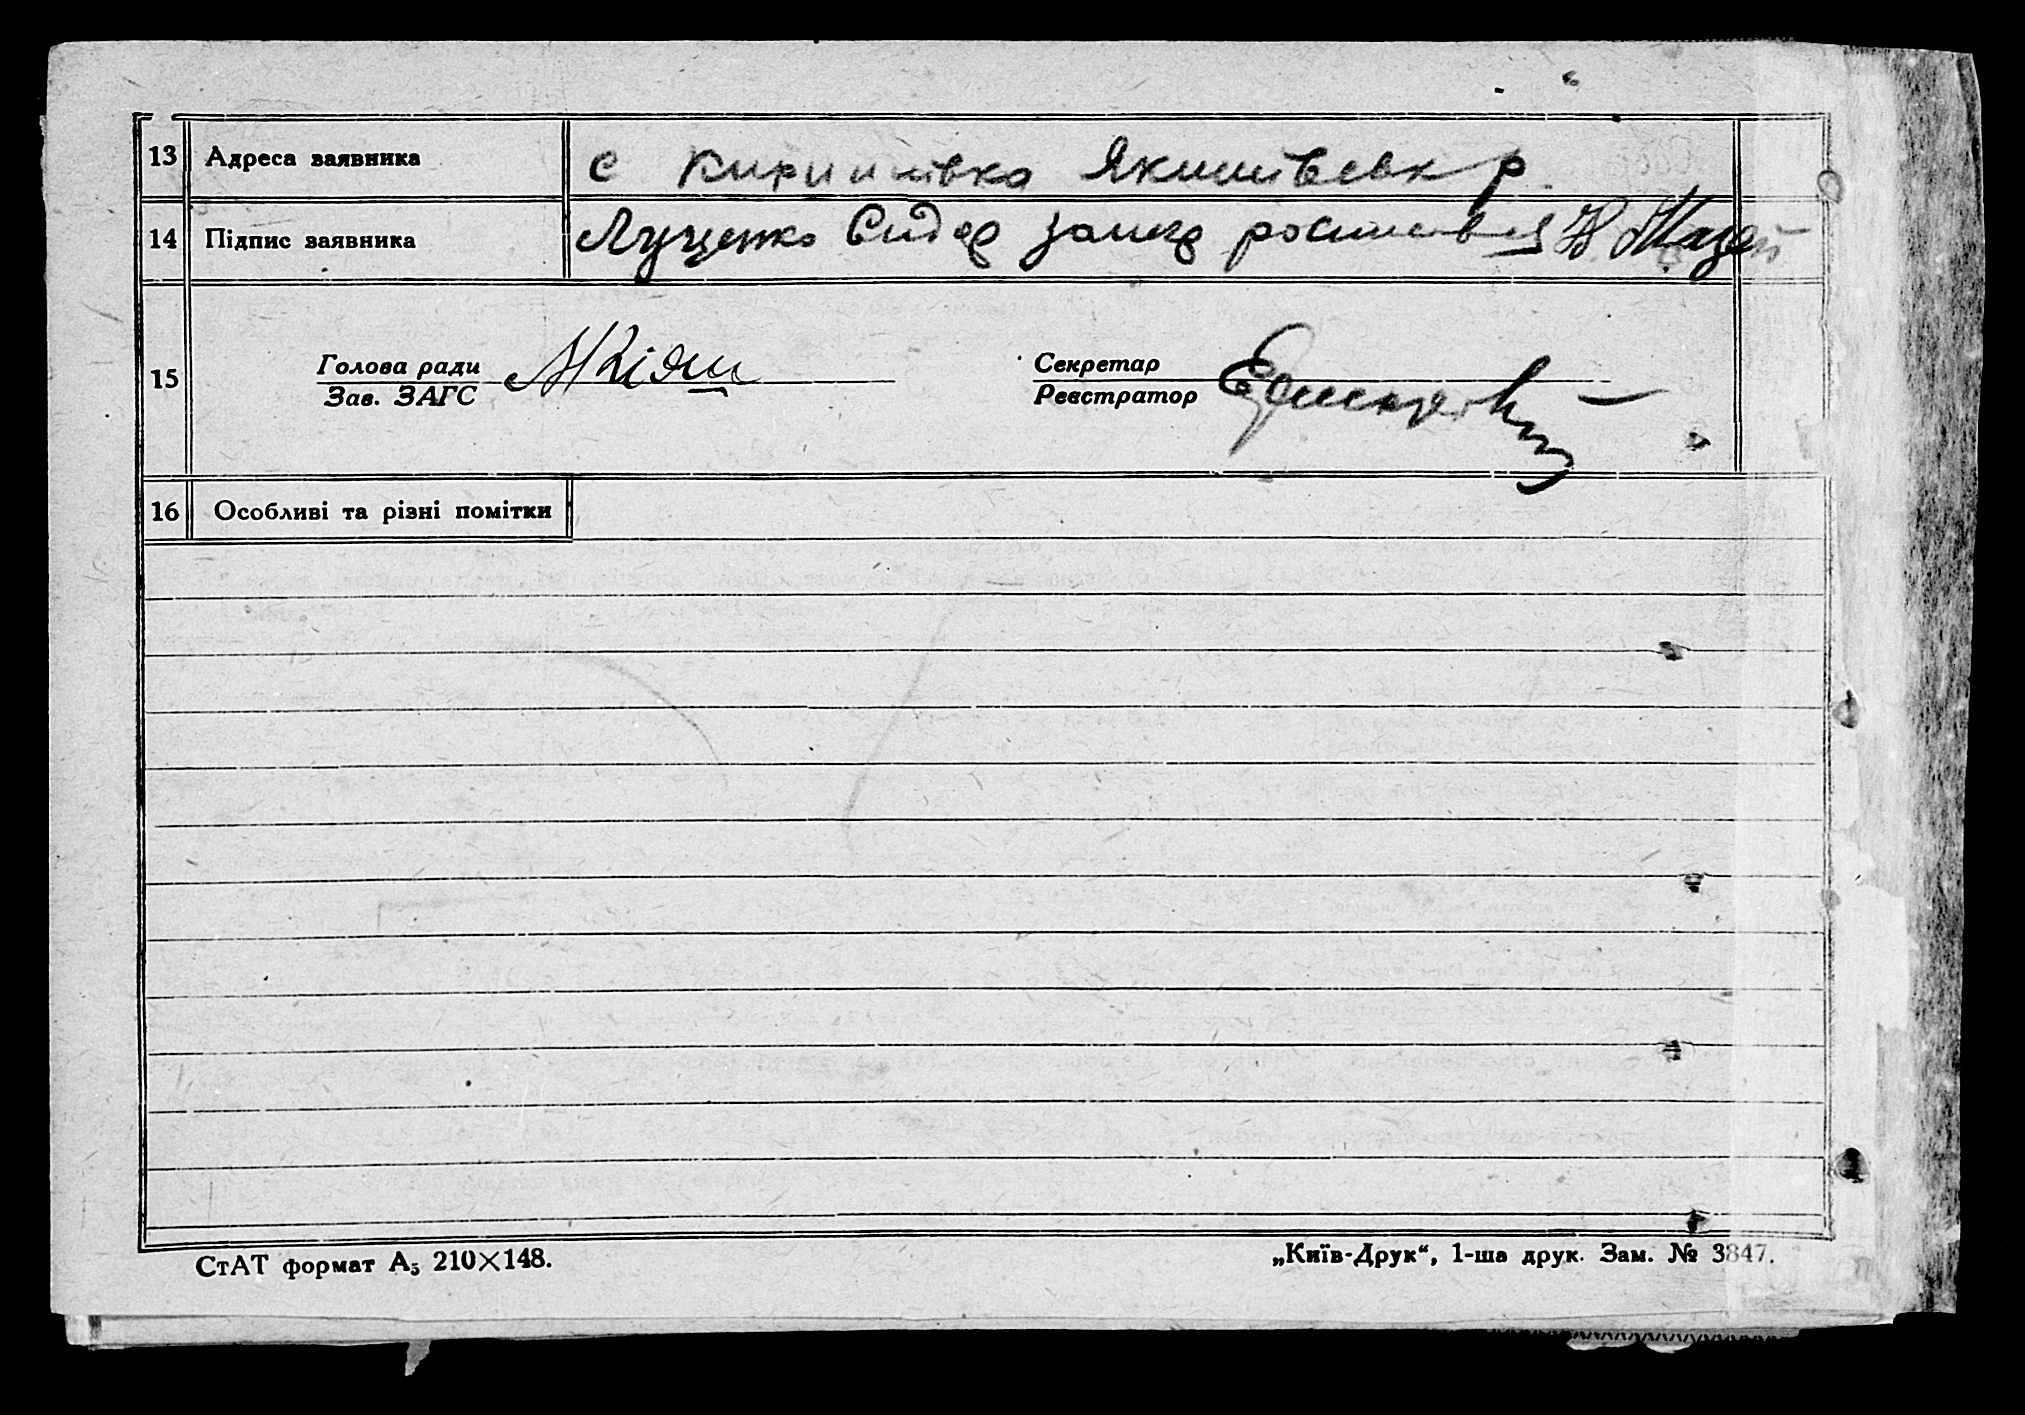 13 Адреса заявника с Кирилівка Якимівськ р.
14 Підпис заявника Луценко Сидор
15 Голова ради Секретар
Зав. ЗАГС Реєстратор
16 Особливі та різні помітки
СтАТ формат А5 210×148. „Київ-Друк“, 1-ша друк. Зам. № 3847.